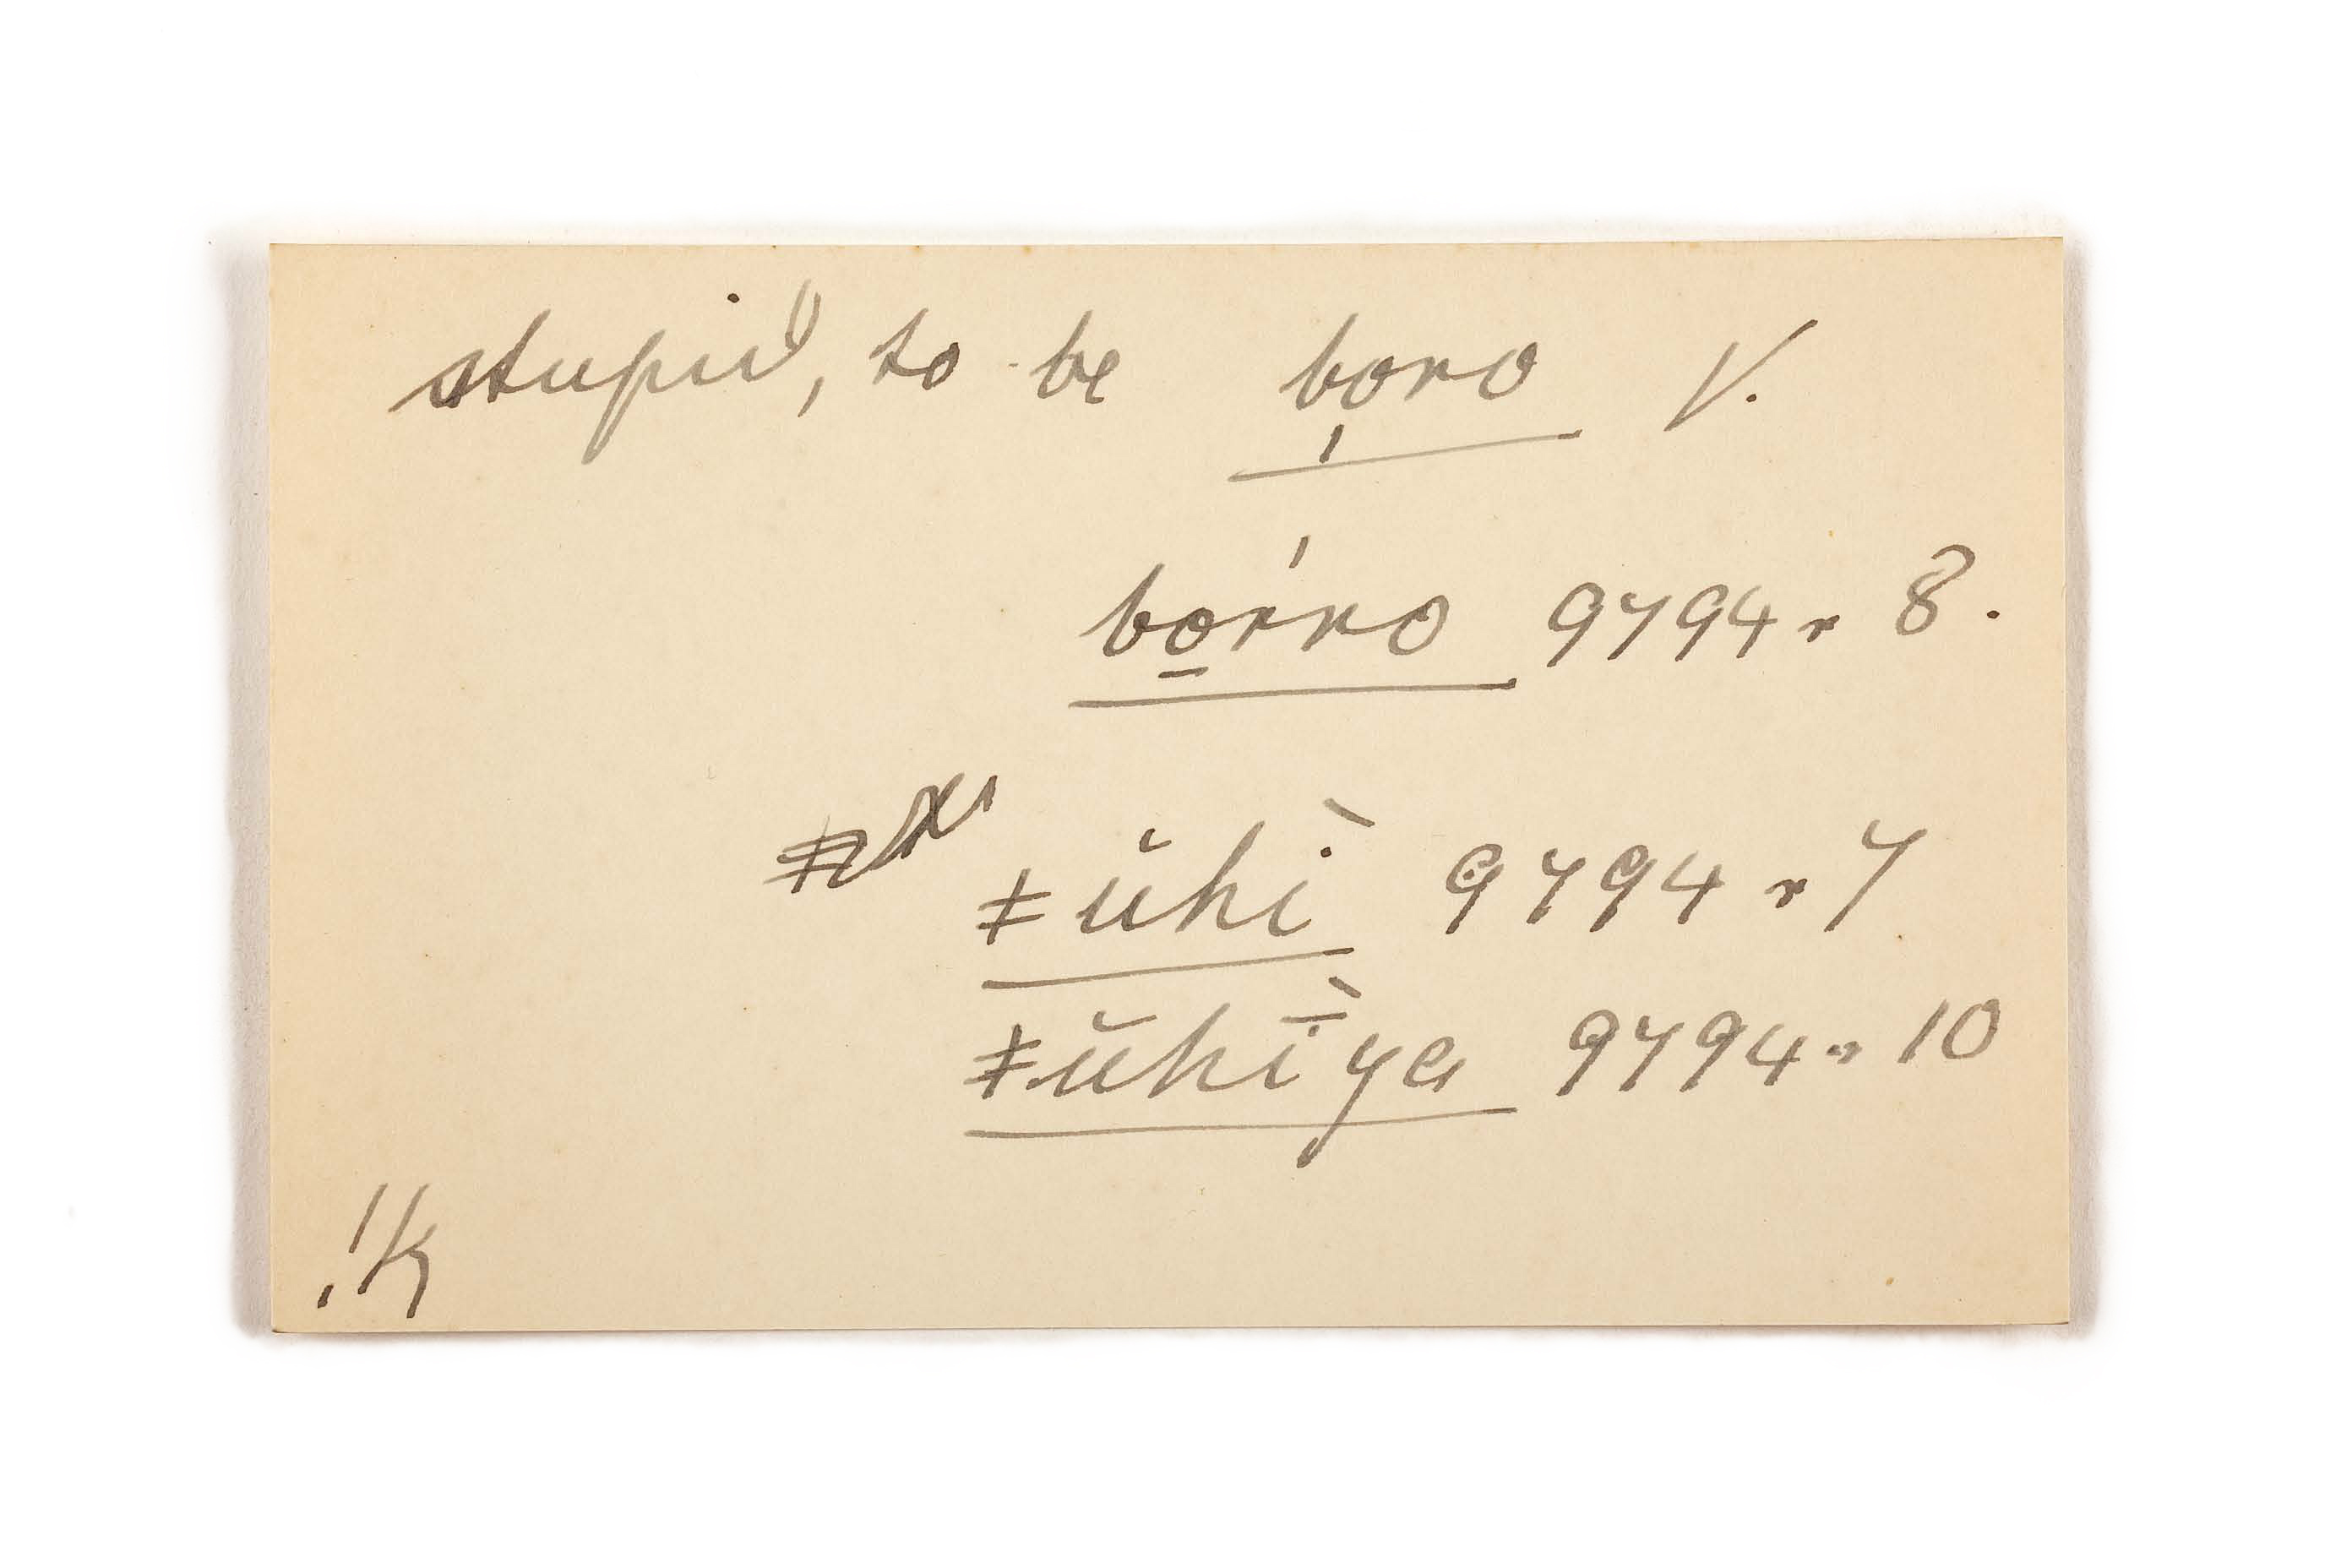 stupid, to be bo̩ro V.
bó̱rro 9794 r 8.
ǂŭhì 9794 r 7
ǂŭhī̀ya 9794 r 10
!k